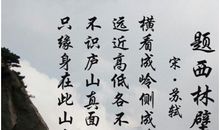 题西林壁
宋·苏轼
横看成岭侧成
远近高低各不
不识庐山真面
只缘身在此山